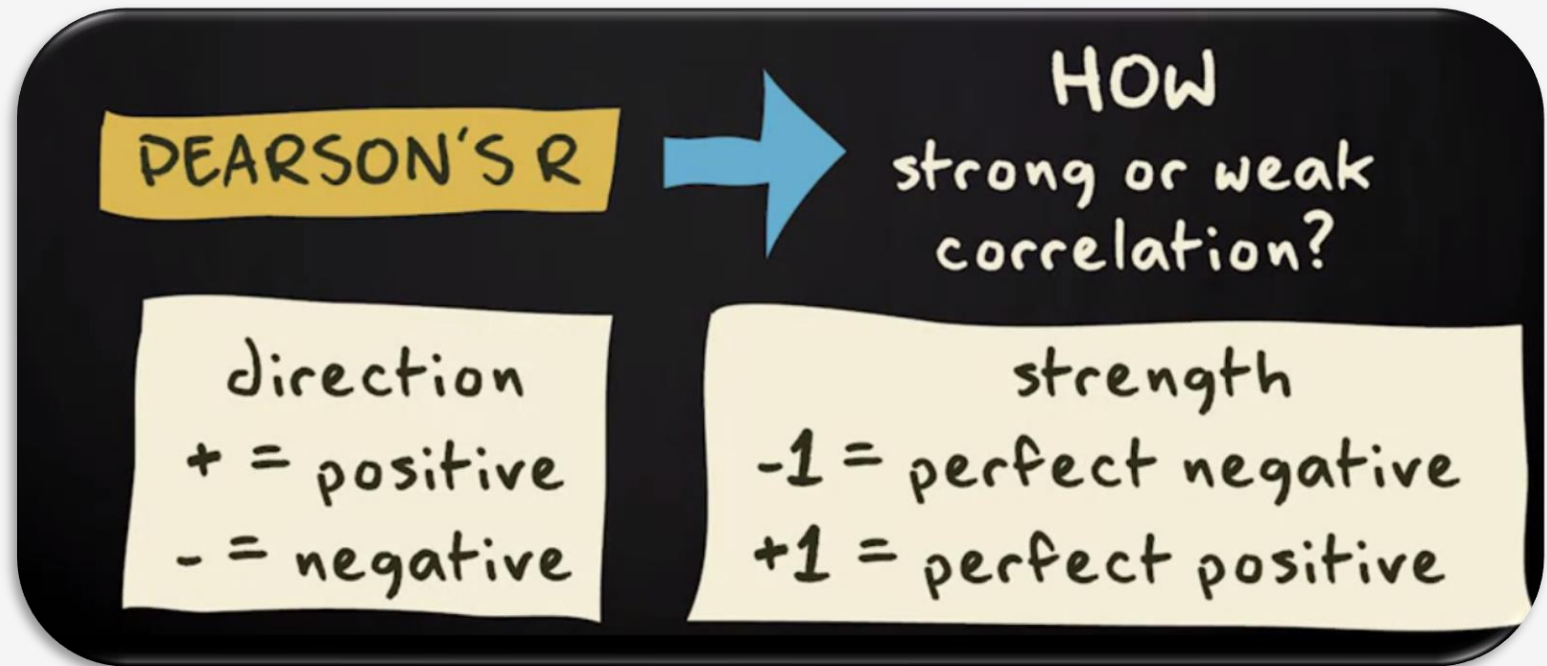 PEARSON'S R
HOW
strong or weak
correlation?
direction
+ = positive
- = negative
strength
-1 = perfect negative
+1 = perfect positive